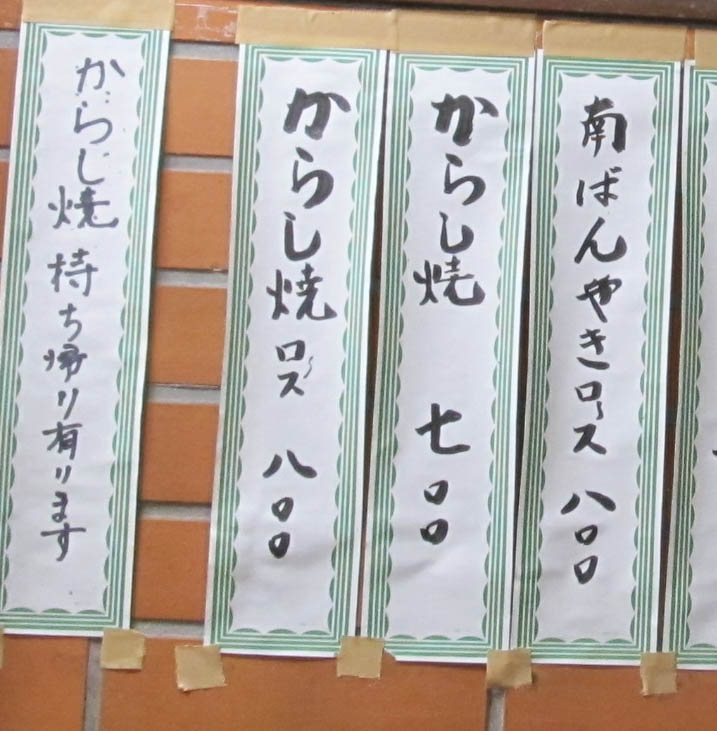 南ばんやきロース 八〇〇
からし焼 七〇〇
からし焼 ロース 八〇〇
からし焼 持ち帰り有ります